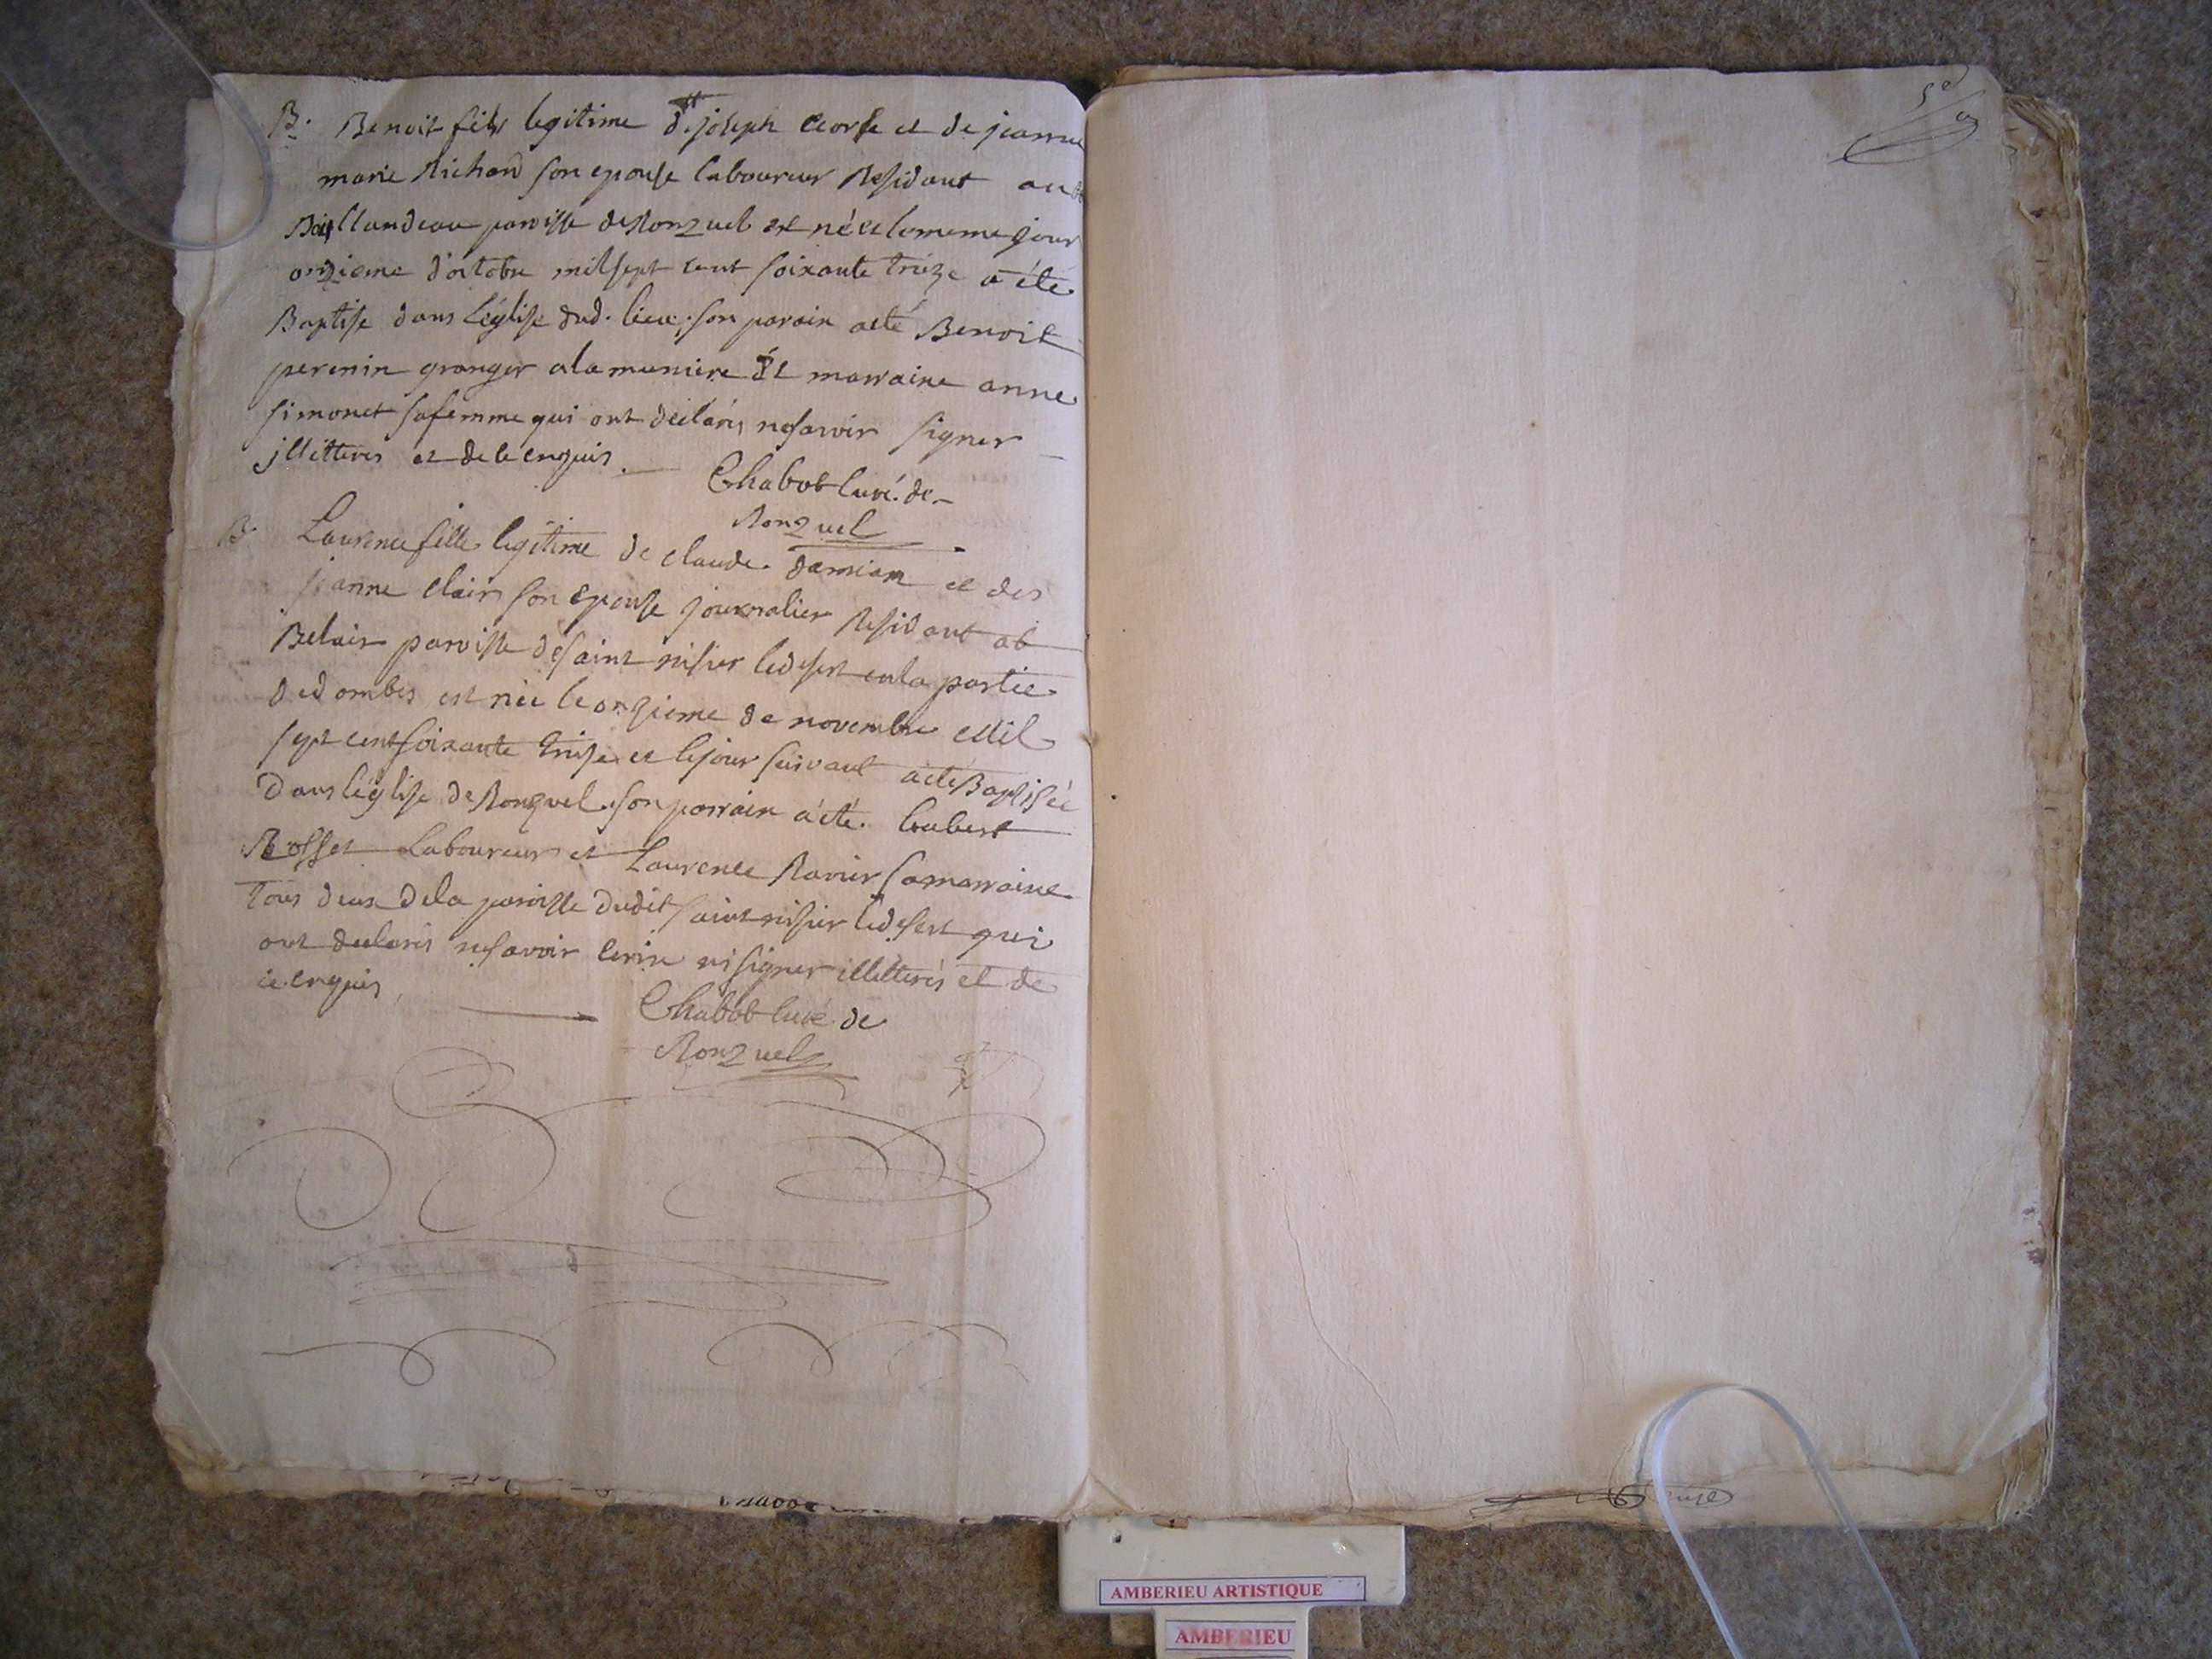 B. Benoit fils legitime de joseph et de jeanne
marie Richard son epouse laboureur Residant au
paroisse de Ronzuel est né et le meme jour
onzieme d'octobre mil sept cent soixante treize a été
Baptise dans L'église dud. lieu; son parain a eté Benoit
perenin granger a la Et marraine anne
simonet sa femme qui ont déclarés ne savoir signer
illitteres et de ce enquis. Chabot curé. de
Ronzuel
B. Laurence fille legitime de claude damian et de
jeanne clair son epouse journalier Residant
Belair paroisse de saint nisier le desert en la partie
de dombes est née le onzieme de novembre Mil
sept cent soixante treize et le jour suivant a été Baptisée
Dans l'église de Ronzuel. son parrain a été.
Rosset Laboureur et Laurence Ravier sa marraine
Tous deux De la paroisse dudit saint nisier le desert qui
ont declarés ne savoir ecrire ni signer illitterés et de
ce enquis, Chabot curé de
Ronzuel
AMBERIEU ARTISTIQUE
AMBERIEU